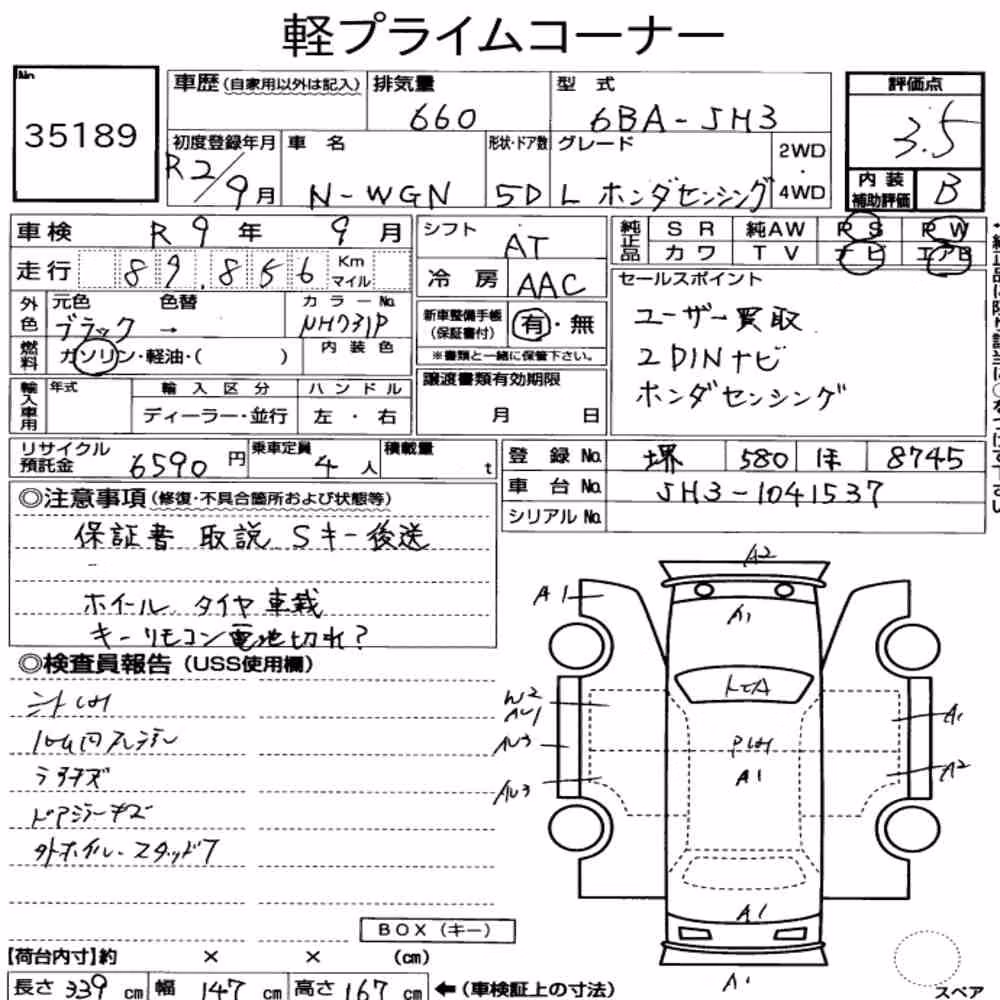 軽プライムコーナー
No.
35189
車歴 (自家用以外は記入)
排気量
660
型 式
6BA-JH3
評価点
3.5
初度登録年月
R2/9月
車 名
N-WGN
形状・ドア数
5D
グレード
L ホンダセンシング
2WD
・
4WD
内 装
補助評価
B
車検 R 9 年 9 月
走行 89,856 Km
マイル
外色
元色
ブラック →
色替
カラーNo.
NH731P
燃料
ガソリン・軽油・( )
内 装 色
輸入車用
年式
輸 入 区 分
ディーラー・並行
ハ ン ド ル
左 ・ 右
シフト
AT
冷 房
AAC
新車整備手帳
(保証書付)
有・無
※書類と一緒に保管下さい。
譲渡書類有効期限
月 日
純正品
S R
純AW
P S
P W
カ ワ
T V
ナ ビ
エアB
セールスポイント
ユーザー買取
2DINナビ
ホンダセンシング
リサイクル
預託金
6590 円
乗車定員
4 人
積載量
t
登 録 No. 堺 580 ほ 8745
車 台 No. JH3-1041537
シリアル No.
◎注意事項 (修復・不具合箇所および状態等)
保証書 取説 Sキー後送
ホイール タイヤ車載
キーリモコン電池切れ?
◎検査員報告 (USS使用欄)
ドアミラーキズ
A2
A1
A1
W2
A1
P
A1
A2
A1
A1
BOX (キー)
【荷台内寸】約 × × (cm)
長さ 339 cm 幅 147 cm 高さ 167 cm ← (車検証上の寸法)
スペア